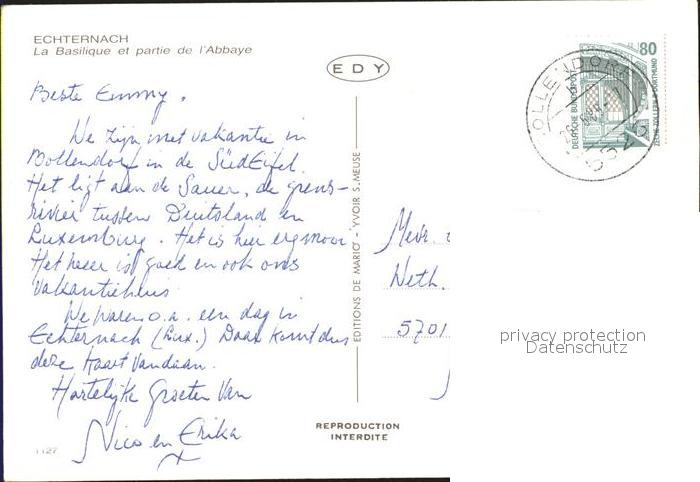 ECHTERNACH
La Basilique et partie de l'Abbaye
EDY
Beste Emmy,
We zijn met vakantie in
Bollendorf in de SüdEifel.
Het ligt aan de Sauer, de grens-
rivier tussen Duitsland en
Luxemburg. Het is hier erg mooi
Het weer is goed en ook ons
vakantiehuis
We waren o.a. een dag in
Echternach (Lux.) Daar komt dus
deze kaart vandaan.
Hartelijke Groeten van
Nico en Erika
1127
EDITIONS DE MARIO - YVOIR S. MEUSE
REPRODUCTION
INTERDITE
80
DEUTSCHE BUNDESPOST
ZECHE ZOLLERN II DORTMUND
OLLENDORF
Mevr.
Neth.
5701
privacy protection
Datenschutz